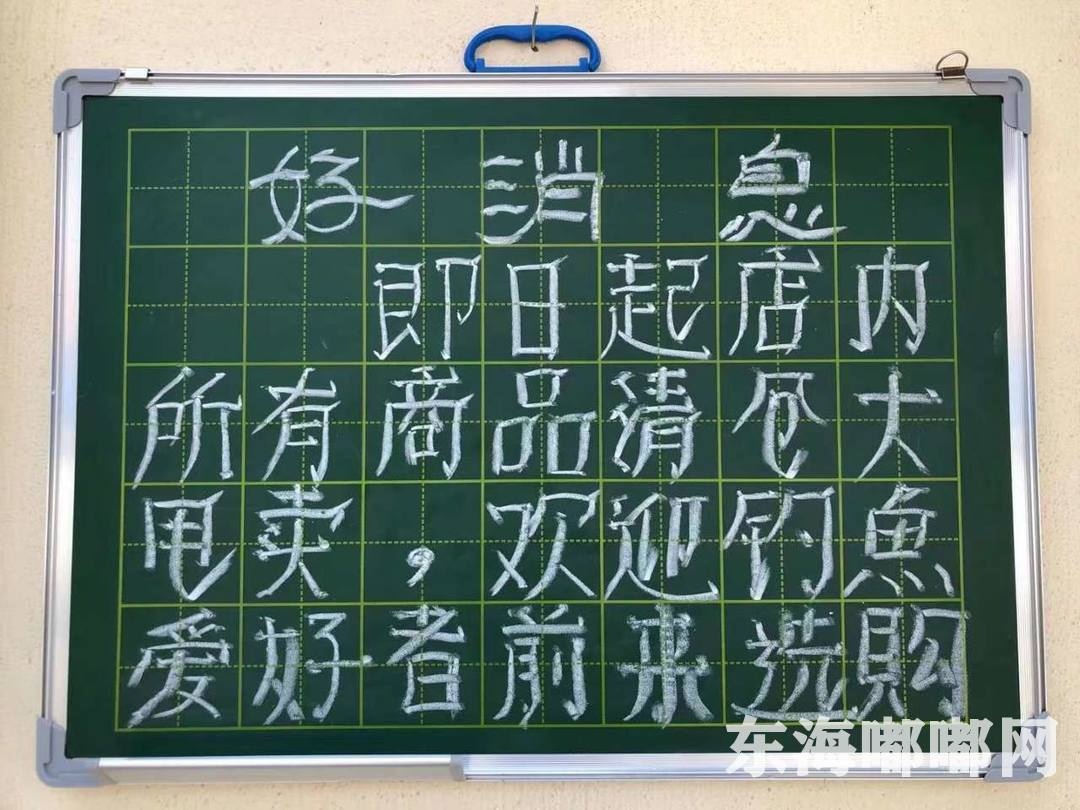 好消息
即日起店内
所有商品清仓大
甩卖，欢迎钓魚
爱好者前来选購
东海嘟嘟网